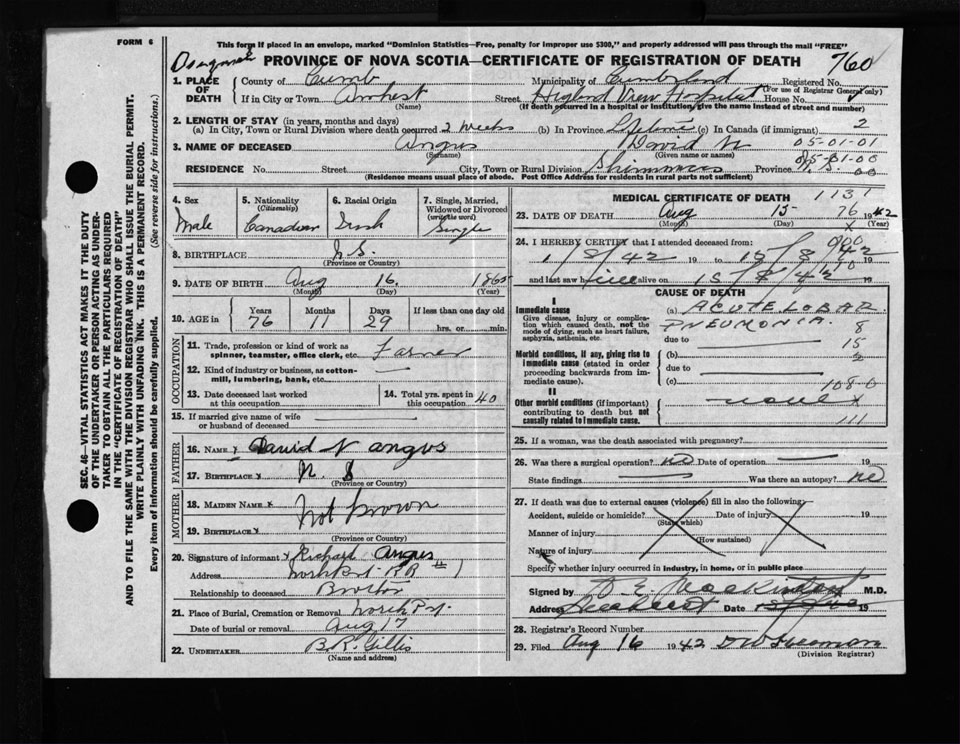 FORM 6
This form if placed in an envelope, marked "Dominion Statistics—Free, penalty for improper use $300," and properly addressed will pass through the mail "FREE"
PROVINCE OF NOVA SCOTIA—CERTIFICATE OF REGISTRATION OF DEATH 760
1. PLACE OF DEATH County of Cumb Municipality of Cumberland Registered No.
(For use of Registrar General only)
If in City or Town Amherst Street Highland View Hospital House No.
(Name) (If death occurred in a hospital or institution, give the name instead of street and number)
2. LENGTH OF STAY (in years, months and days)
(a) In City, Town or Rural Division where death occurred 2 weeks (b) In Province Lifetime (c) In Canada (if immigrant) 2
3. NAME OF DECEASED Angus David N 05-01-01
(Surname) (Given name or names)
RESIDENCE No. Street City, Town or Rural Division Province N.S.
(Residence means usual place of abode. Post Office Address for residents in rural parts not sufficient)
SEC. 46—VITAL STATISTICS ACT MAKES IT THE DUTY
OF THE UNDERTAKER OR PERSON ACTING AS UNDER-
TAKER TO OBTAIN ALL THE PARTICULARS REQUIRED
IN THE "CERTIFICATE OF REGISTRATION OF DEATH"
AND TO FILE THE SAME WITH THE DIVISION REGISTRAR WHO SHALL ISSUE THE BURIAL PERMIT.
WRITE PLAINLY WITH UNFADING INK. THIS IS A PERMANENT RECORD.
Every item of information should be carefully supplied. (See reverse side for instructions.)
4. Sex
Male
5. Nationality
(Citizenship)
Canadian
6. Racial Origin
Irish
7. Single, Married,
Widowed or Divorced
(write the word)
Single
8. BIRTHPLACE N.S.
(Province or Country)
9. DATE OF BIRTH Aug 16 1865
(Month) (Day) (Year)
10. AGE in Years Months Days If less than one day old
76 11 29 hrs. or min.
OCCUPATION
11. Trade, profession or kind of work as
spinner, teamster, office clerk, etc. Farmer
12. Kind of industry or business, as cotton-
mill, lumbering, bank, etc.
13. Date deceased last worked
at this occupation
14. Total yrs. spent in
this occupation 40
15. If married give name of wife
or husband of deceased
FATHER
16. NAME David N Angus
17. BIRTHPLACE N.S
(Province or Country)
MOTHER
18. MAIDEN NAME Not Known
19. BIRTHPLACE
(Province or Country)
20. Signature of informant Richard Angus
Address Northport RR # 1
Relationship to deceased Brother
21. Place of Burial, Cremation or Removal North Pt.
Date of burial or removal Aug 17
22. UNDERTAKER B.R. Gillis
(Name and address)
MEDICAL CERTIFICATE OF DEATH 1131
23. DATE OF DEATH Aug 15 76 1942
(Month) (Day) (Year)
24. I HEREBY CERTIFY that I attended deceased from:
1/8/42 19 to 15/8/42 19
and last saw h alive on 15/8/42 19
CAUSE OF DEATH
I
Immediate cause
Give disease, injury or complica-
tion which caused death, not the
mode of dying, such as heart failure,
asphyxia, asthenia, etc.
(a) ACUTE LOBAR
PNEUMONIA. 8
due to 15
Morbid conditions, if any, giving rise to
immediate cause (stated in order
proceeding backwards from im-
mediate cause).
(b)
due to
(c) 108-0
II
Other morbid conditions (if important)
contributing to death but not
causally related to immediate cause.
none x
111
25. If a woman, was the death associated with pregnancy?
26. Was there a surgical operation? no Date of operation 19
State findings Was there an autopsy? no
27. If death was due to external causes (violence) fill in also the following:
Accident, suicide or homicide? Date of injury 19
(State which)
Manner of injury
(How sustained)
Nature of injury
Specify whether injury occurred in industry, in home, or in public place
Signed by M.D.
Address Date 19
28. Registrar's Record Number
29. Filed Aug 16 1942
(Division Registrar)